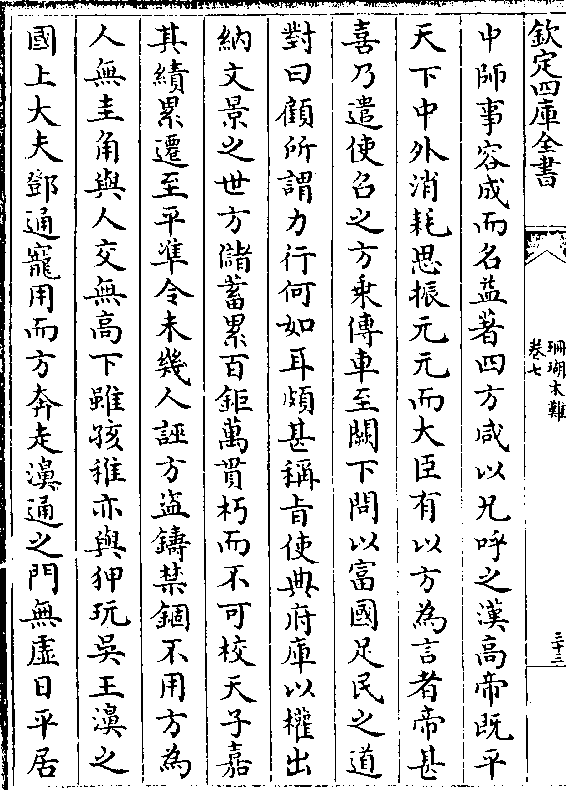 欽定四庫全書
珊瑚木難
卷七
三十三
中師事容成而名益著四方咸以兄呼之漢高帝既平
天下中外消耗思振元元而大臣有以方為言者帝甚
喜乃遣使召之方乘傳車至闕下問以富國足民之道
對曰顧所謂力行何如耳頗甚稱旨使典府庫以權出
納文景之世方儲蓄累百鉅萬貫朽而不可校天子嘉
其績累遷至平準令未幾人誣方盜鑄禁錮不用方為
人無圭角與人交無高下雖孩稚亦與狎玩吳王濞之
國上大夫鄧通寵用而方奔走濞通之門無虛日平居